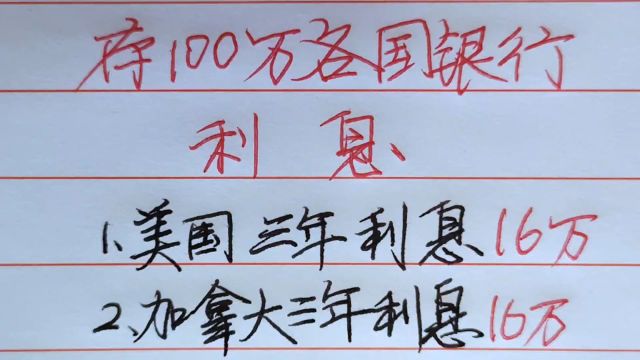 存100万各国银行
利息
1、美国三年利息16万
2、加拿大三年利息16万